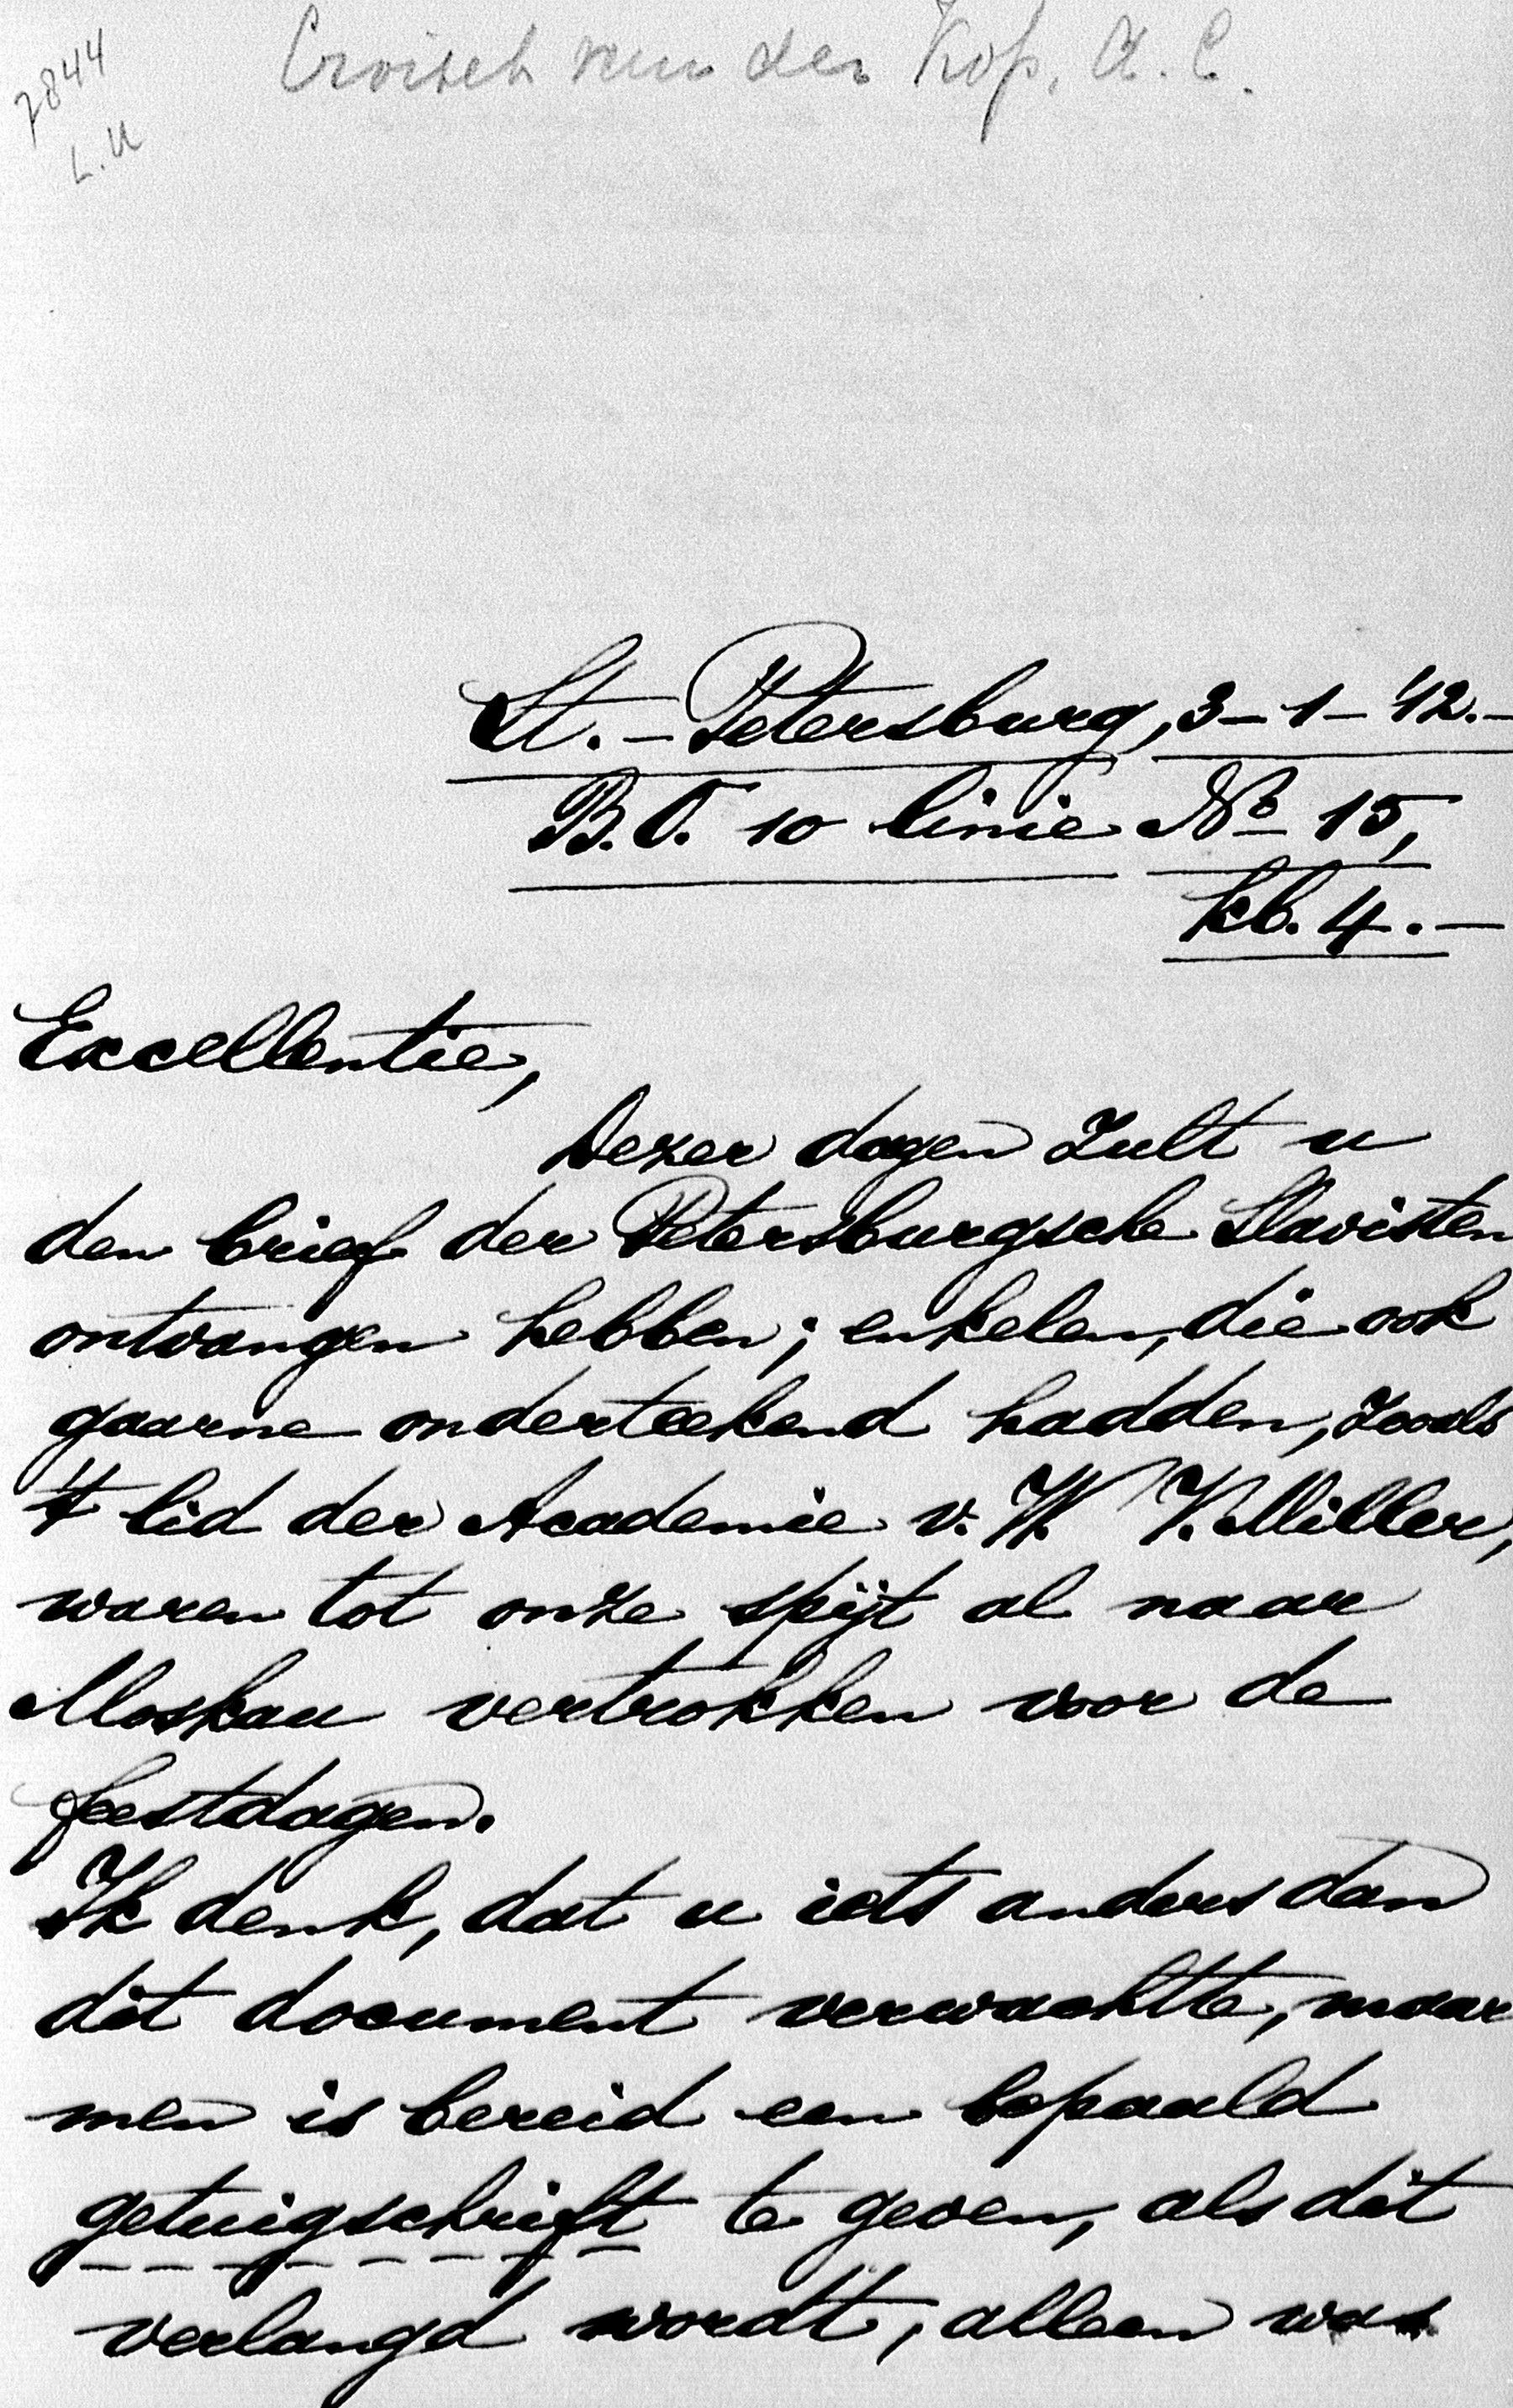 7844
L.U
Croiset van der Kop, A. C.
St.-Petersburg, 3-1-'12.-
B.O. 10 linie No 15,
kb. 4.-
Excellentie,
Dezer dagen zult u
den brief der Petersburgsche Slavisten
ontvangen hebben; enkelen, die ook
gaarne onderteekend hadden, zooals
't lid der Academie v. W. V. Miller,
waren tot onze spijt al naar
Moskau vertrokken voor de
feestdagen.
Ik denk, dat u iets anders dan
dit document verwachtte, maar
men is bereid een bepaald
getuigschrift te geven, als dit
verlangd wordt, alleen was